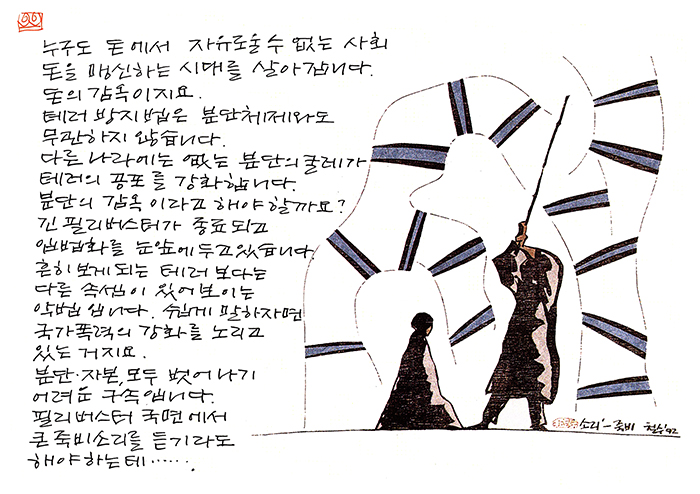 누구도 돈에서 자유로울 수 없는 사회
돈을 맹신하는 시대를 살아갑니다.
돈의 감옥이지요.
테러 방지법은 분단체제와도
무관하지 않습니다.
다른 나라에는 없는 분단의 굴레가
테러의 공포를 강화합니다.
분단의 감옥이라고 해야 할까요?
긴 필리버스터가 종료되고
입법화를 눈앞에 두고 있습니다.
흔히 보게 되는 테러 보다는
다른 속셈이 있어 보이는
악법 입니다. 쉽게 말하자면
국가폭력의 강화를 노리고
있는 거지요.
분단·자본, 모두 벗어나기
어려운 구속입니다.
필리버스터 국면에서
큰 죽비소리를 듣기라도
해야 하는데 ……
소리-죽비 철수 '92